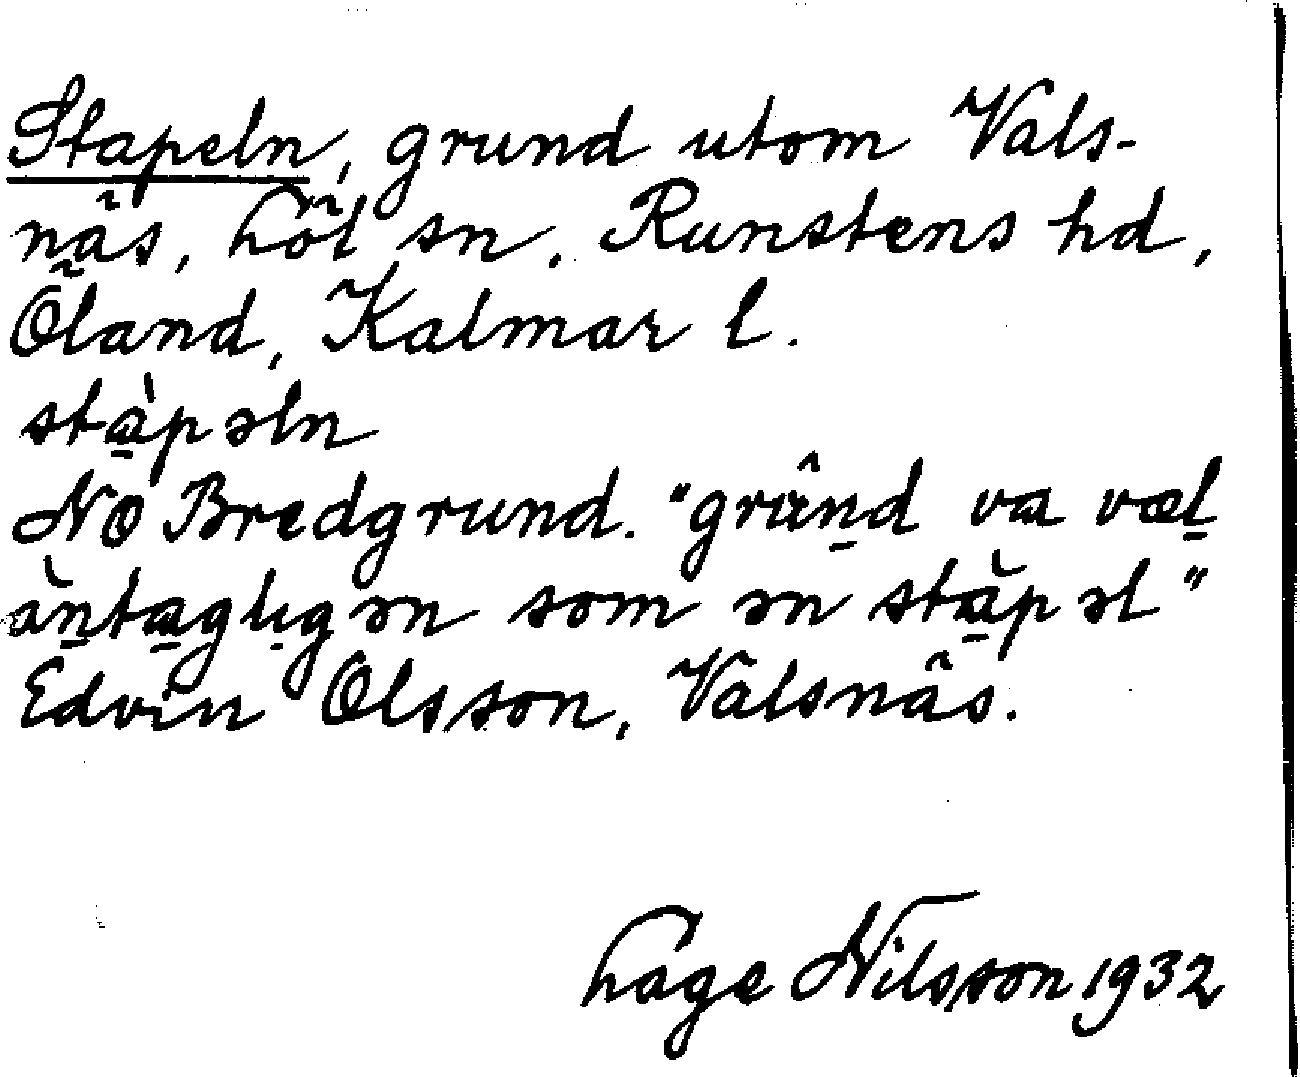 Stapeln, grund utom Vals-
näs, Löt sn, Runstens hd,
Öland, Kalmar l.
stà̱pəln
NO Bredgrund. "grüṉd va væḻ
àṉta̱gligən som ən stà̱pəl"
Edvin Olsson, Valsnäs.
Lage Nilsson 1932